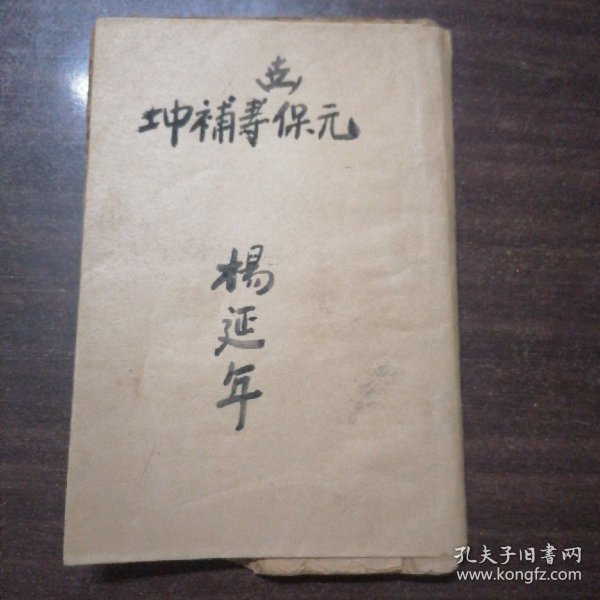 世
坤補壽保元
楊延年
孔夫子旧书网
www.kongfz.com